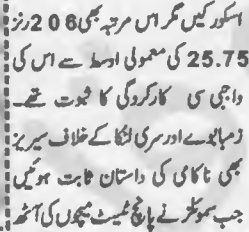 اسکور کیں مگر اس مرتبہ بھی 206 رنز
25.75 کی معمولی اوسط سے اس کی
واجبی سی کارکردگی کا ثبوت تھے۔
زمبابوے اور سری لنکا کے خلاف سیریز
بھی ناکامی کی داستان ثابت ہوئیں
جب سموئلز نے پانچ ٹمیٹ میچوں کی آٹھ